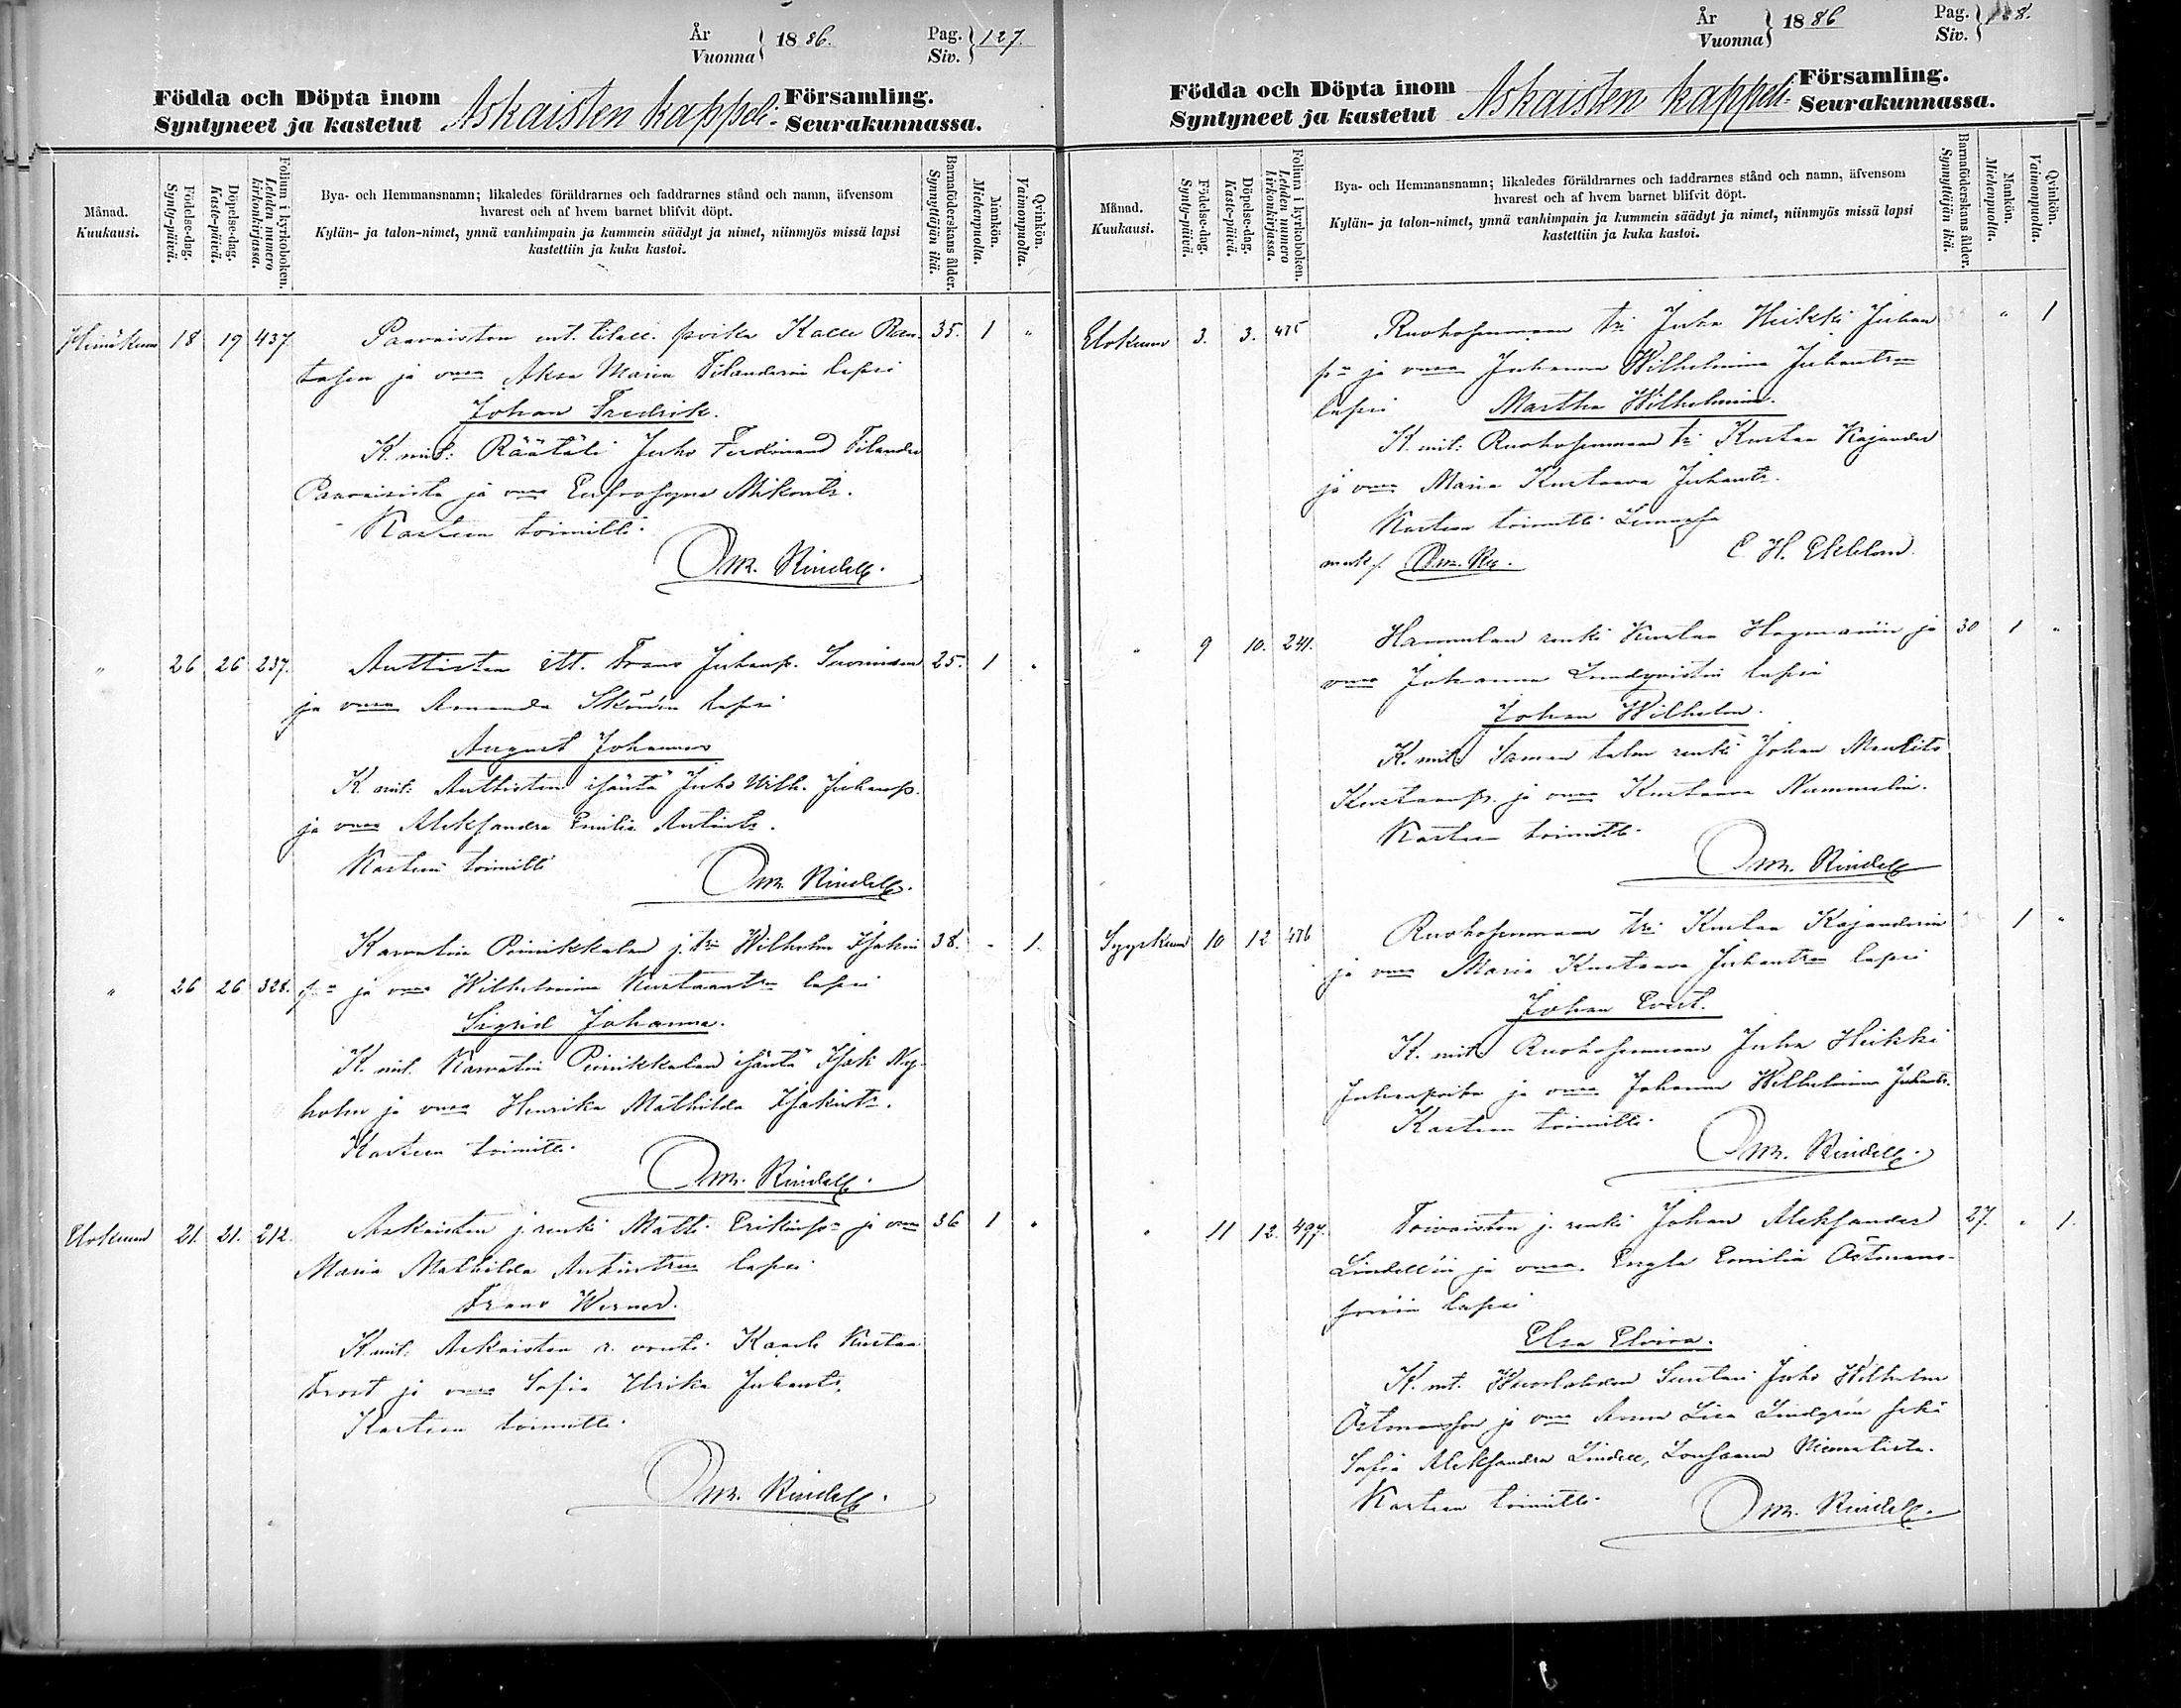 År
Vuonna } 1886.
Pag.
Siv. } 127.
Födda och Döpta inom
Syntyneet ja kastetut Askaisten kappeli- Församling.
Seurakunnassa.
Månad.
Kuukausi.
Födelse-dag.
Synty-päivä.
Döpelse-dag.
Kaste-päivä.
Folium i kyrkoboken.
Lehden numero
kirkonkirjassa.
Bya- och Hemmansnamn; likaledes föräldrarnes och faddrarnes stånd och namn, äfvensom
hvarest och af hvem barnet blifvit döpt.
Kylän- ja talon-nimet, ynnä vanhimpain ja kummein säädyt ja nimet, niinmyös missä lapsi
kastettiin ja kuka kastoi.
Barnaföderskans ålder.
Synnyttäjän ikä.
Mankön.
Miehenpuolia.
Qvinkön.
Vaimonpuolia.
Heinäkuu 18 19 437 Paavaisten ent. tilall. poika Kalle Ran- 35. 1 "
tasen ja vmon Aksa Maria Filanderin lapsi
Johan Fredrik.
K. mit: Räätäli Juho Ferdinand Filander
Paavaisista ja vmo Eufrosyna Mikonts.
Kasteen toimitti
Osk. Rindell.
" 26 26 237. Anttisten itt. Frans Juhanp. Suominen 25. 1 "
ja vmon Amanda lapsi
August Johannes
K. mit: Anttisten isäntä Juho Wilh. Juhanp.
ja vmo Aleksandra Emilia Antints.
Kasteen toimitti
Rindell.
Karvatin Piinikkalan j. tri Wilhelm Isakin 38. - 1.
" 26 26 328. pn ja vmo Wilhelmina Kustaantrn lapsi
Sigrid Johanna.
K. mit. Karvatin Piinikkalan isäntä Isak Ny-
holm ja vmo Henrika Mathilda Isakints.
Kasteen toimitti
Rindell.
Elokuu 21. 21. 212. Askaisten j. renki Matti Erikinpn ja vmon 36 1 "
Maria Mathilda Antintrn lapsi
Frans Werner.
K. mit: Askaisten r. vouti Kaarle Kustaa
Frost ja vmo Sofia Ulrika Juhants.
Kasteen toimitti
Rindell.
År
Vuonna } 1886
Pag.
Siv. } 128.
Födda och Döpta inom
Syntyneet ja kastetut Askaisten kappeli- Församling.
Seurakunnassa.
Månad.
Kuukausi.
Födelse-dag.
Synty-päivä.
Döpelse-dag.
Kaste-päivä.
Folium i kyrkoboken.
Lehden numero
kirkonkirjassa.
Bya- och Hemmansnamn; likaledes föräldrarnes och faddrarnes stånd och namn, äfvensom
hvarest och af hvem barnet blifvit döpt.
Kylän- ja talon-nimet, ynnä vanhimpain ja kummein säädyt ja nimet, niinmyös missä lapsi
kastettiin ja kuka kastoi.
Barnaföderskans ålder.
Synnyttäjän ikä.
Mankön.
Miehenpuolia.
Qvinkön.
Vaimonpuolia.
Elokuu 3. 3. 475 Ruohosenmaan tri Juha Heikki Juhan " 1
pn ja vmon Johanna Wilhelmina Juhantrn
lapsi Martha Wilhelmina.
K. mit: Ruohosenmaan tri Kustaa Kajander
ja vmo Maria Kustaava Juhants.
Kasteen toimitti Lemussa
C. H. Ekblom.
" 9 10. 241. Hannulan renki Kustaa Hagmanin ja 30 1 "
vmon Johanna Lundqvistin lapsi
Johan Wilhelm.
K. mit: Saman talon renki Johan
Kustaanp. ja vmo Kustaava Nummelin.
Kasteen toimitti
Rindell
Syyskuu 10 12 476 Ruohosenmaan tri Kustaa Kajanderin 1 "
ja vmon Maria Kustaava Juhantrn lapsi
Johan Evert.
K. mit: Ruohosenmaan Juha Heikki
Juhanpoika ja vmo Johanna Wilhelmina Juhants.
Kasteen toimitti
Rindell.
" 11 12. 497. Toivaisten j. renki Johan Aleksander 27. " 1.
Lindellin ja vmon Engla Emilia Östmans-
sonin lapsi
Elsa Elvira.
K. mt. Suutari Juho Wilhelm
Östmansson ja vmo Anna Lisa Lindgrén sekä
Sofia Aleksandra Lindell, Niemestista.
Kasteen toimitti
Rindell.